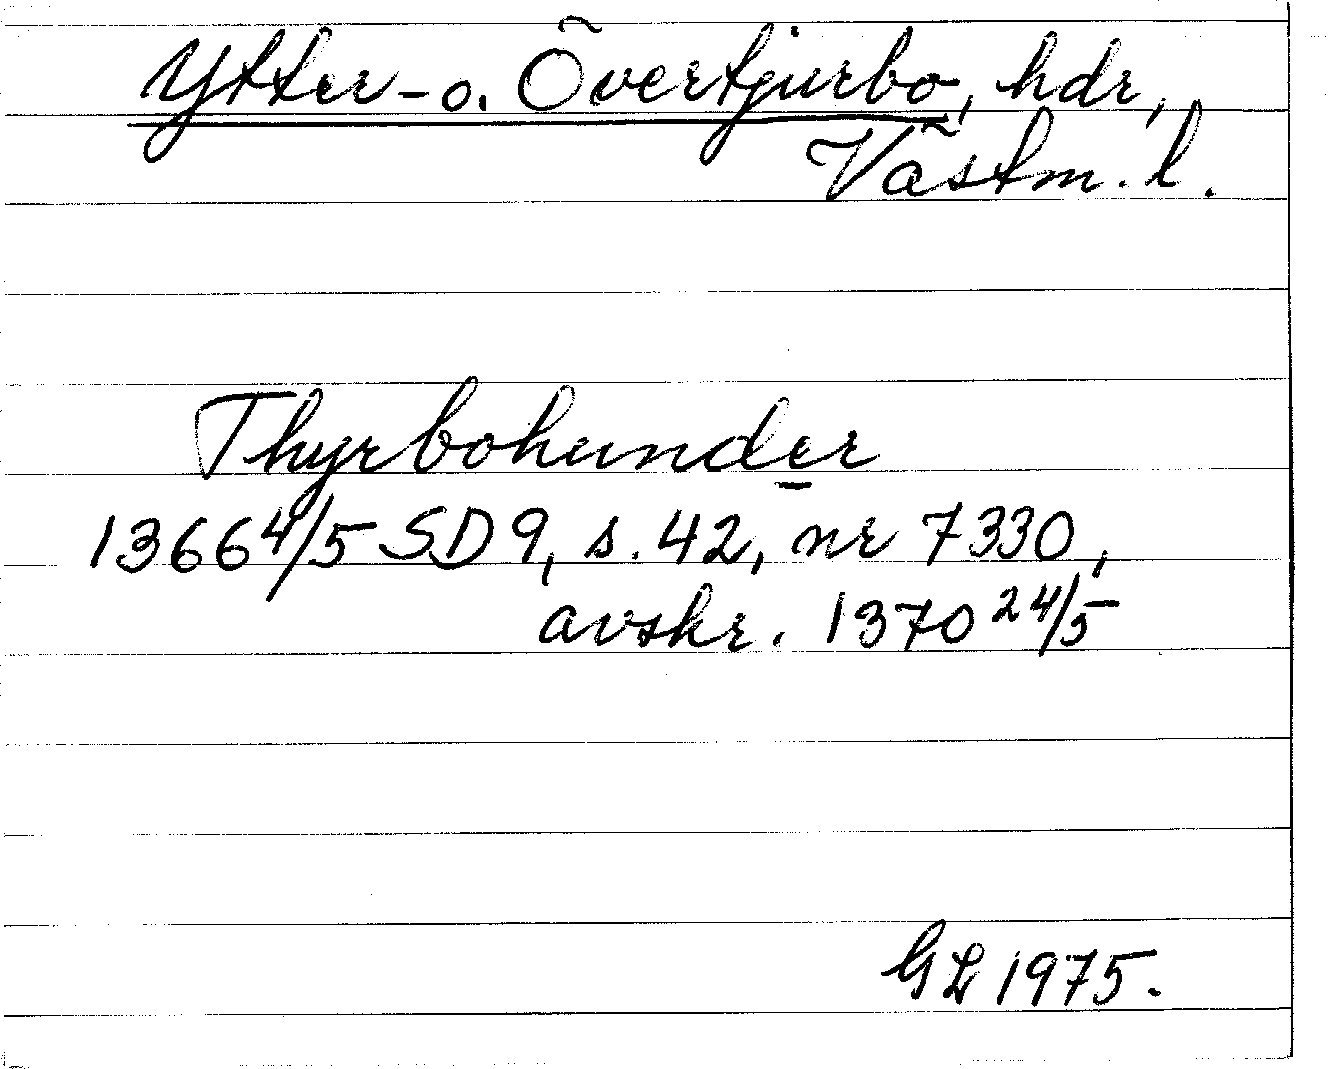 Ytter- o. Övertjurbo, hdr,
Västm. l.
Thyrbohunder
1366 4/5 SD 9, s. 42, nr 7330,
avskr. 1370 24/5
GL 1975.